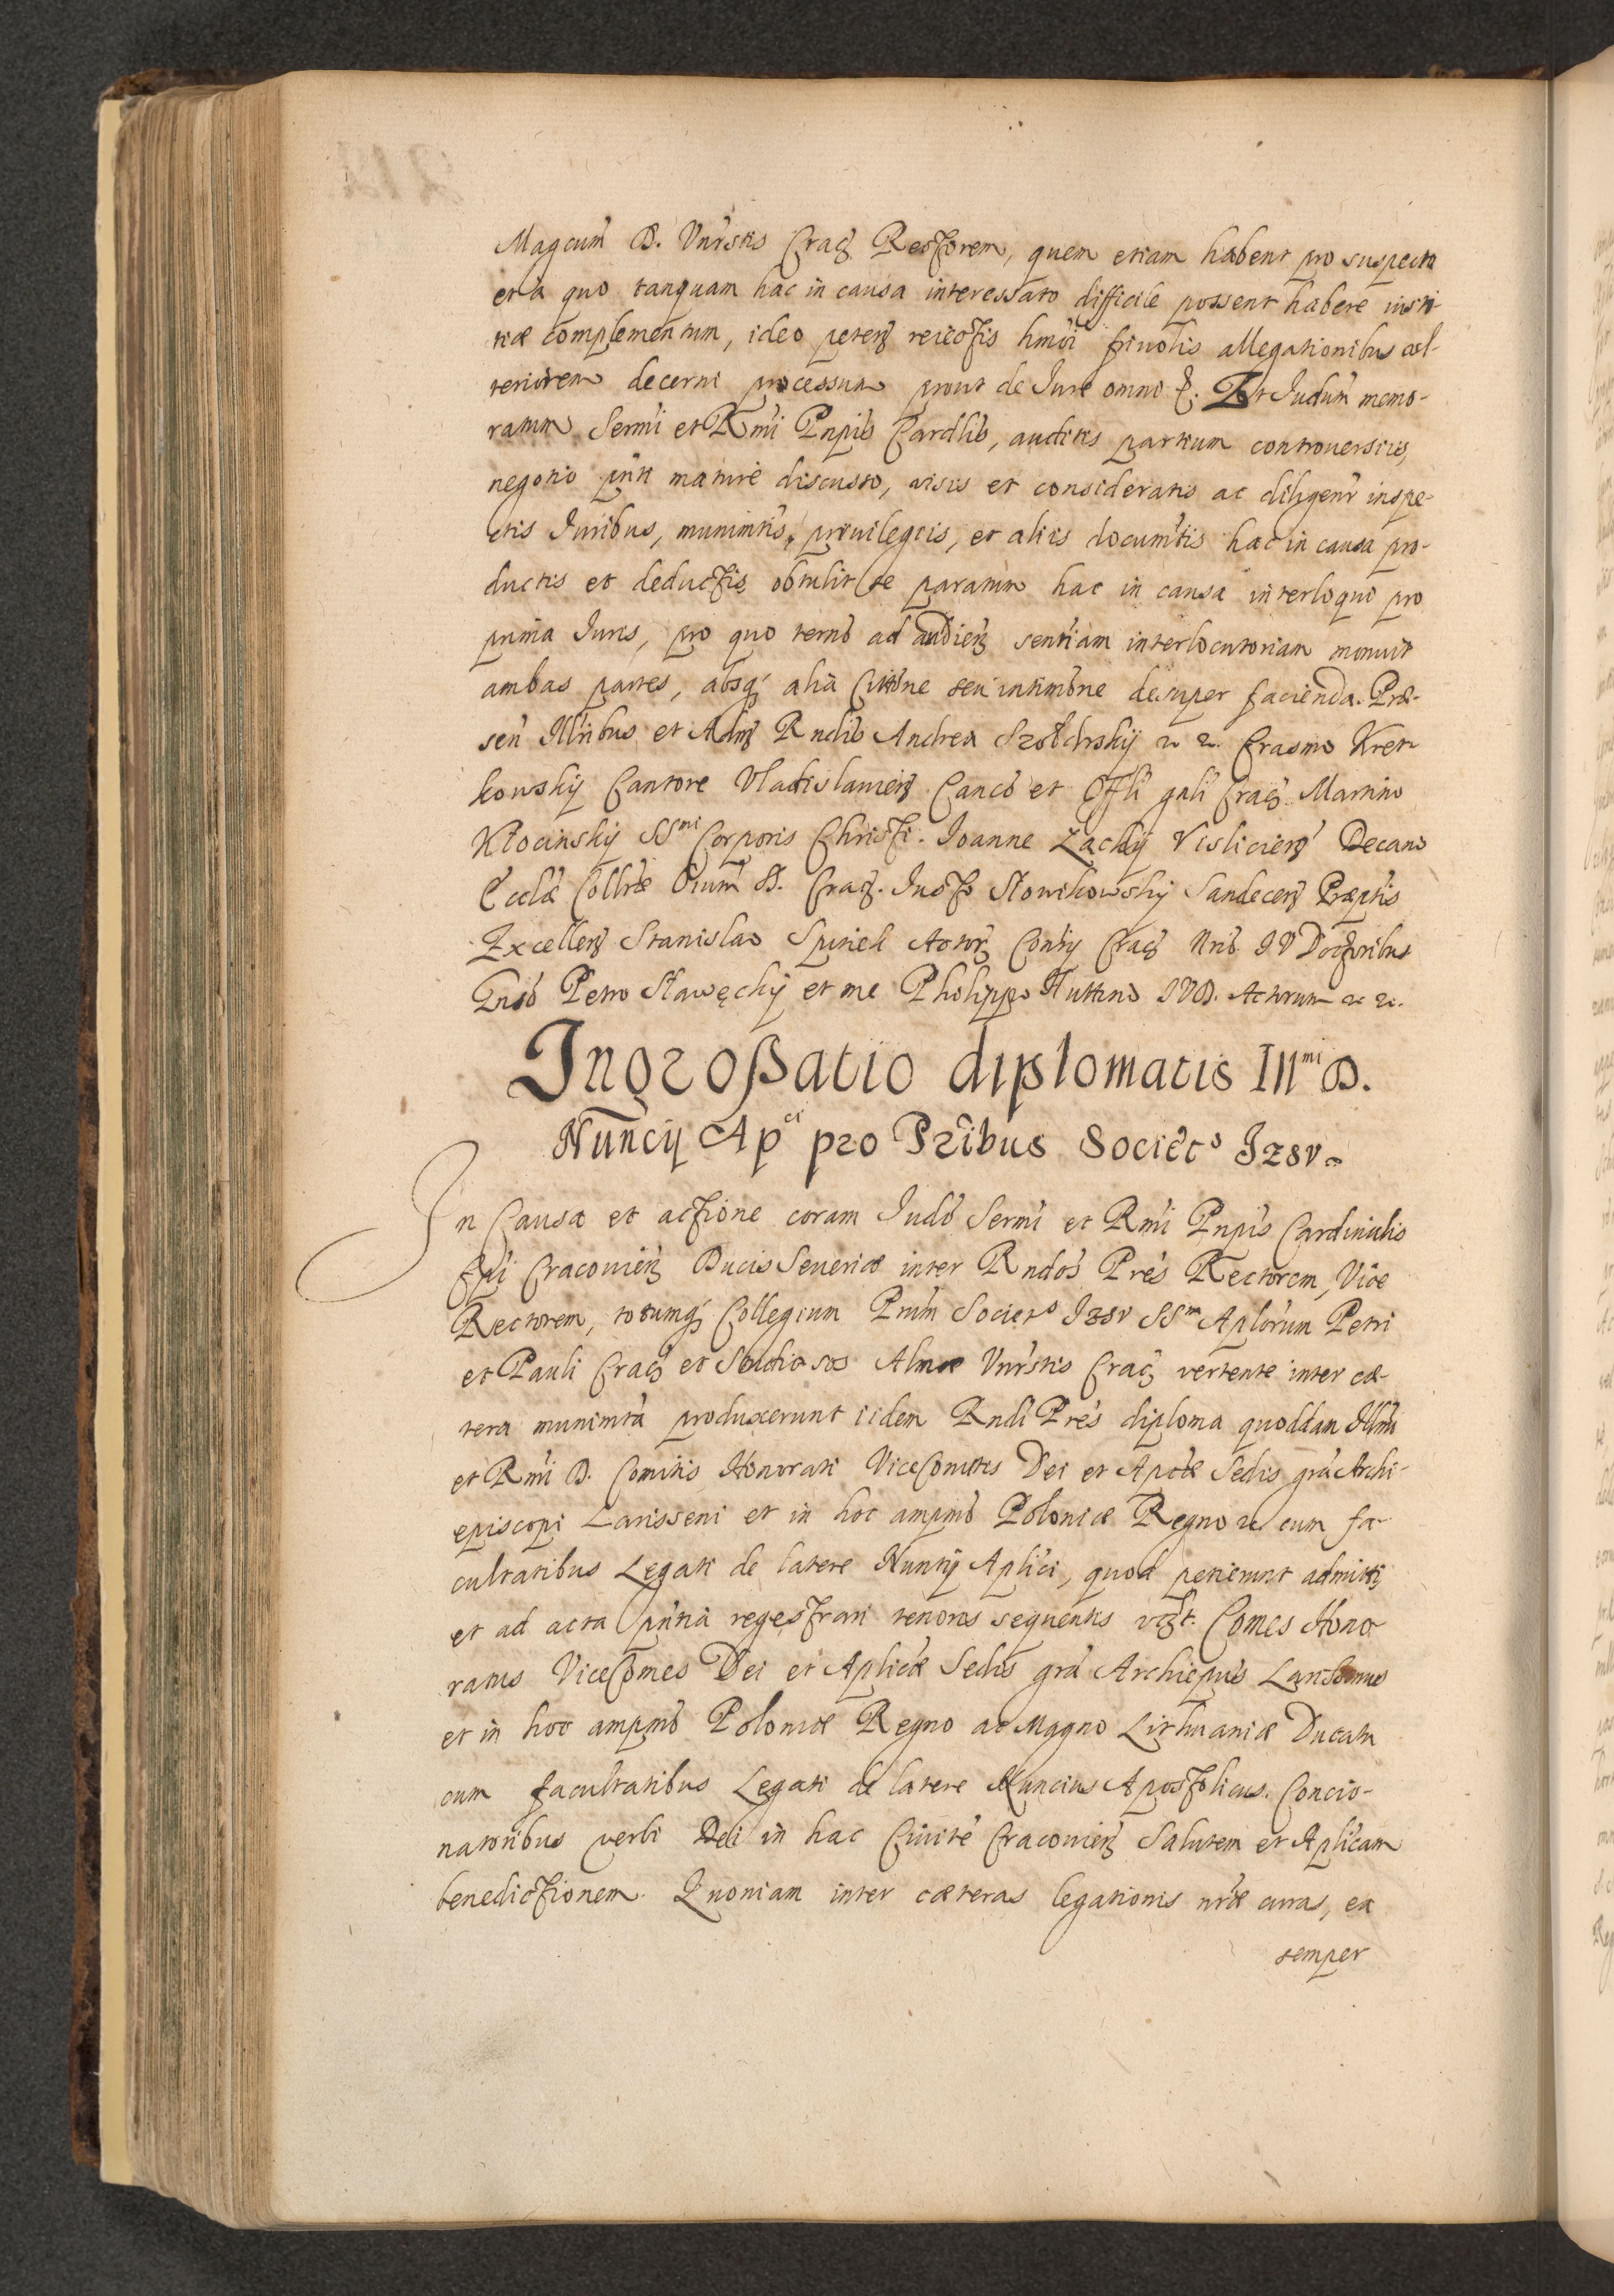 Magcum D. Vnrstis Crac̃ Rectorem, quem etiam habent pro suspecto
et a quo tanquam hac in causa interessato difficile possent habere iusti-
tiæ complementum, ideo peten̄ reiectis hmoi friuolis allegationibus vl-
teriorem decerni processum prout de Iure omni &. Et Iudm̄ memo-
ratum Sermi et Rmi Pnpis Cardlis, auditis partium controuersiis,
negotio pn̄ti mature discusso, visis et consideratis ac diligentr inspe-
ctis Iuribus, munimtis, priuilegiis, et aliis documtis hac in causa pro-
ductis et deductis obtulit se paratum hac in causa interloqui pro
prima Iuris, pro quo termo ad audien̄ sentiam interlocutoriam monuit
ambas partes, absq́ alia Cittōne seu intimōne desuper facienda. Præ-
sen̄ Illribus et Adm̄ Rndis Andrea Szołdrskÿ & &. Erasmo Kret-
kowskÿ Cantore Vladislauien̄ Canco et Offli gnli Crac̃. Martino
Kłocinskÿ SSmi Corporis Christi. Ioanne Zackÿ Visliciens Decano
Ecclæ Collrtæ Oium SS. Crac̃. Iusto Słowikowskÿ Sandecen̄ Præptis
Excellen̄ Stanislao Spinek Actor̄ Consÿ Crac̃ Nris IV Doctoribus
Gnso Petro Sławęckÿ et me Philippo Huttino IVD. Actorum & &.
Ingroßatio diplomatis Illmi D.
Nuncÿ Apci pro Pribus Societs Iesv.
In Causa et actione coram Iudo Sermi et Rmi Pnpis Cardinalis
Epi Cracouien̄ Ducis Seueriæ inter Rndos Pres Rectorem, Vice
Rectorem, totumq́ Collegium Prum Societs Iesv SSm Aplorum Petri
et Pauli Crac̃ et Studiosos Almæ Vnrstis Crac̃ vertente inter cæ-
tera munimta produxerunt iidem Rndi Pres diploma quoddam Illmi
et Rmi D. Comitis Honorati ViceComitis Dei et Apcæ Sedis gra Archi-
episcopi Larisseni et in hoc ampmo Poloniæ Regno & cum fa-
cultatibus Legati de latere Nuntÿ Aplici, quod petierunt admitti
et ad acta pn̄tia regestrari tenoris sequentis vizt. Comes Hono-
ratus ViceComes Dei et Aplicæ Sedis gra Archiepus Larissenus
et in hoc ampmo Poloniæ Regno ac Magno Lithuaniæ Ducatu
cum facultatibus Legati de latere Nuncius Apostolicus. Concio-
natoribus verbi Dei in hac Ciuite Cracouien̄ Salutem et Aplicam
benedictionem. Quoniam inter cæteras legationis nræ curas, ea
semper